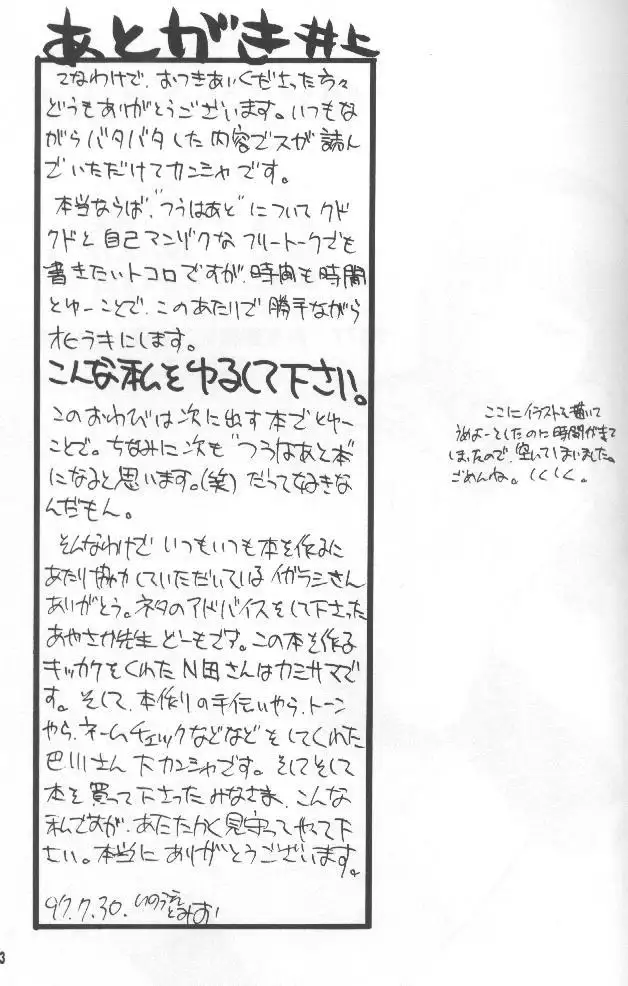 あとがき 井上
てなわけで、おつきあいくださった方々
どうもありがとうございます。いつもな
がらバタバタした内容でスが読ん
でいただけてカンシャです。
本当ならば、"つうはあと"についてクド
クドと自己マンゾクなフリートークでも
書きたいトコロですが、時間も時間
とゆーことで、このあたりで勝手ながら
オヒラキにします。
こんな私をゆるして下さい。
このおわびは次に出す本でとゆー
ことで。ちなみに次も"つうはあと本"
になると思います。(笑)だって好きな
んだもん。
そんなわけでいつもいつも本を作るに
あたり協力していただいているイガラシさん
ありがとう。ネタのアドバイスをして下さった
あやさか先生どーもです。この本を作る
キッカケをくれたN田さんはカミサマで
す。そして、本作りの手伝いやら、トーン
やら、ネームチェックなどなどをしてくれた
巴川さん 大カンシャです。そしてそして
本を買って下さったみなさま、こんな
私ですが、あたたかく見守ってやって下
さい。本当にありがとうございます。
97.7.30. いのうえ
とみお
ここにイラストを描いて
うめよーとしたのに時間が来て
しまったので、空いてしまいました。
ごめんね。しくしく。
3